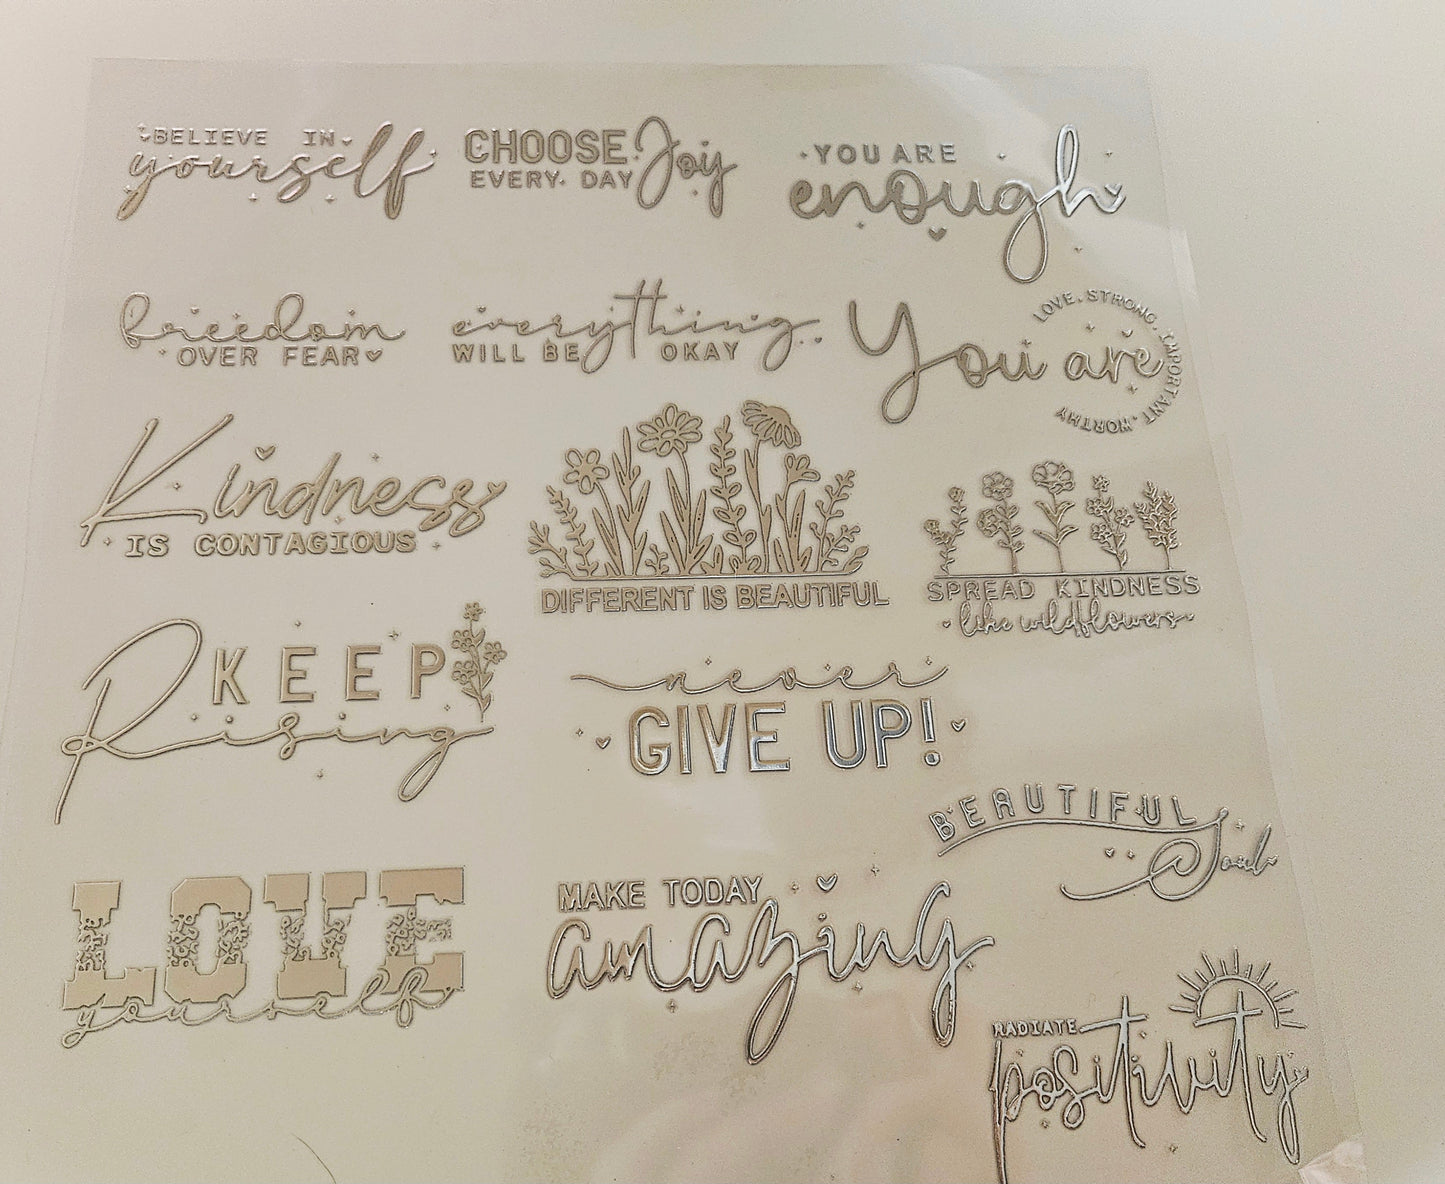 BELIEVE IN
yourself
CHOOSE Joy
EVERY DAY
YOU ARE
enough
freedom
OVER FEAR
everything
WILL BE OKAY
You are
LOVE. STRONG. IMPORTANT. WORTHY
Kindness
IS CONTAGIOUS
DIFFERENT IS BEAUTIFUL
SPREAD KINDNESS
like wildflowers
KEEP
Rising
never
GIVE UP!
BEAUTIFUL
Soul
LOVE
yourself
MAKE TODAY
amazing
RADIATE
positivity